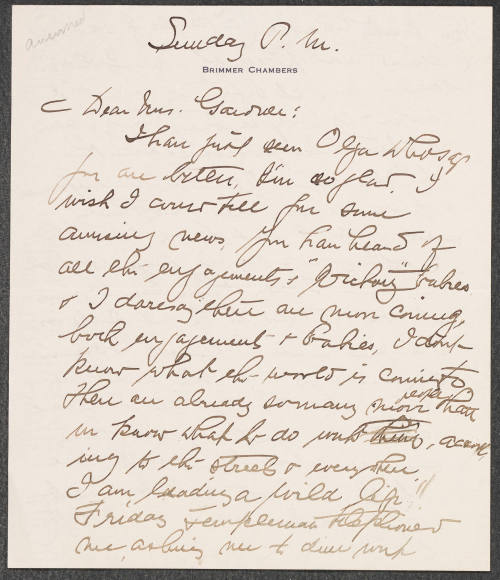 answered
Sunday P. M.
BRIMMER CHAMBERS
Dear Mrs. Gardner:
I have just seen Olga who says
you are better, I'm so glad. I
wish I could tell you some
amusing news, you have heard of
all the engagements & "Victory" babies
& I daresay there are more coming,
both engagements & babies, I don't
know what the world is coming to
There are already so many more people than
we know what to do with, accord
ing to the streets & everywhere.
I am leading a wild life!!
Friday Templeman telephoned
me, asking me to dine with